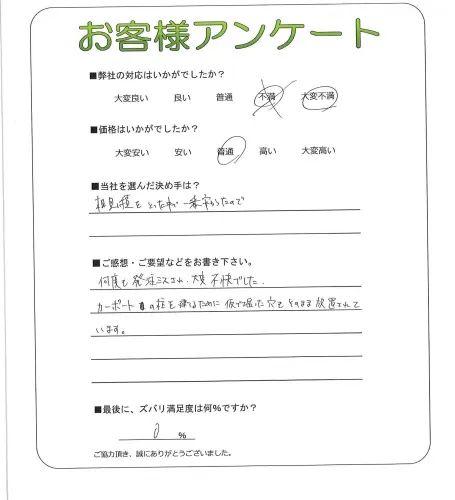 お客様アンケート
■弊社の対応はいかがでしたか？
大変良い 良い 普通 不満 大変不満
■価格はいかがでしたか？
大変安い 安い 普通 高い 大変高い
■当社を選んだ決め手は？
相見積をとった中で一番安かったので
■ご感想・ご要望などをお書き下さい。
何度も発注ミスされ、大変不快でした。
カーポートの柱を建るために仮で掘った穴をそのまま放置されて
います。
■最後に、ズバリ満足度は何％ですか？
0 %
ご協力頂き、誠にありがとうございました。